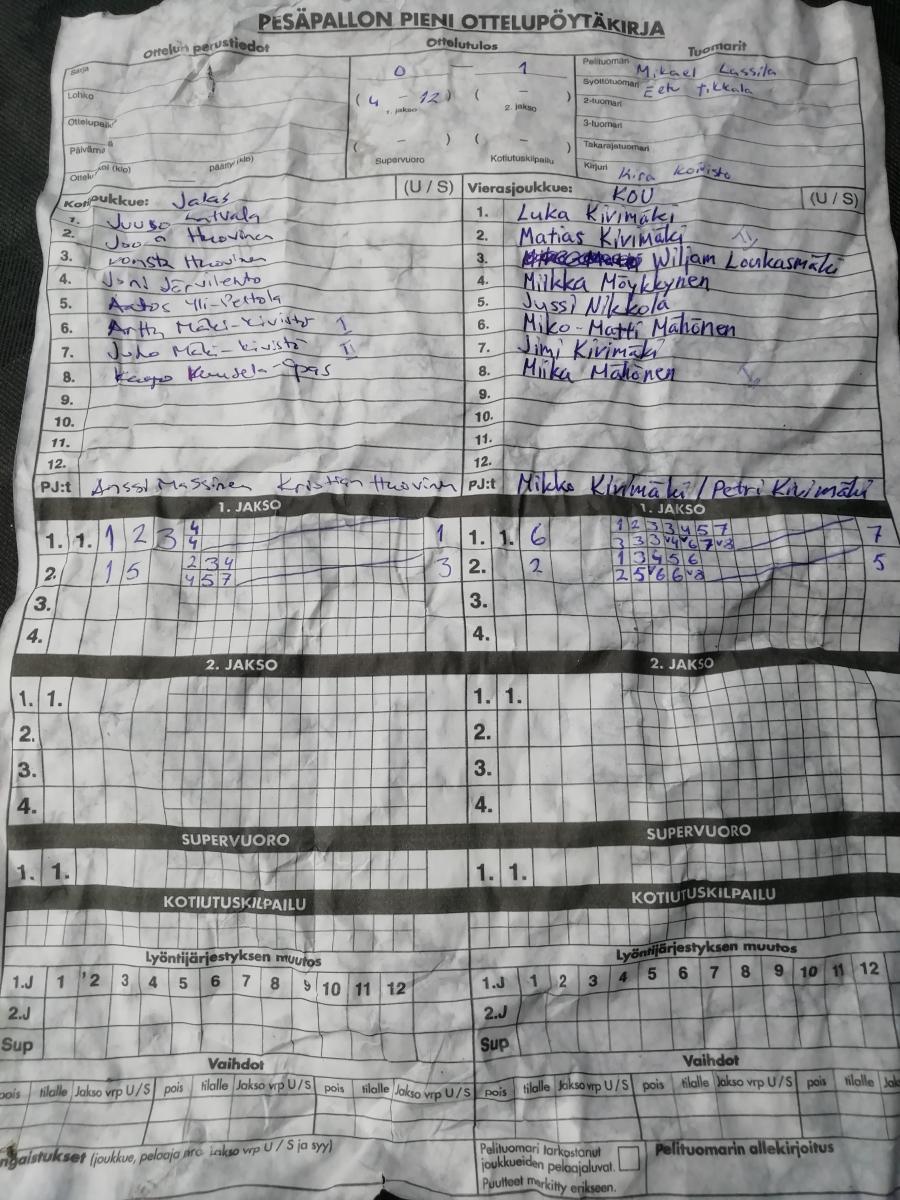 PESÄPALLON PIENI OTTELUPÖYTÄKIRJA
Ottelun perustiedot Ottelutulos Tuomarit
Sarja
Lohko
Ottelupaik
Päivämä
Ottelu (klo) päättyi (klo)
0 — 1
( 4 - 12 ) ( - )
1. jakso 2. jakso
( - ) -
Supervuoro Kotiutuskilpailu
Pelituomari Mikael Lassila
Syöttötuomari Eetu Tikkala
2-tuomari
3-tuomari
Takarajatuomari
Kirjuri Kira Koivisto
Kotijoukkue: Jalas (U / S)
1. Juuso Latvala
2. Joona Huovinen
3. Konsta Huovinen
4. Joni Järvilehto
5. Aatos Yli-Pettola
6. Arttu Mäki-Kivistö I
7. Juho Mäki-Kivistö II
8. Kaapo Kuusela-Opas
9.
10.
11.
12.
PJ:t Anssi Massinen Kristian Huovinen
Vierasjoukkue: KOU (U / S)
1. Luka Kivimäki
2. Matias Kivimäki II
3. Wiljam Loukasmäki
4. Miikka Möykkynen
5. Jyssi Nikkola
6. Miko-Matti Mähönen
7. Jimi Kivimäki
8. Miika Mähönen I
9.
10.
11.
12.
PJ:t Mikko Kivimäki / Petri Kivimäki
1. JAKSO
1. 1. 1 2 3 4 1
4
2. 1 5 2 3 4 3
4 5 7
3.
4.
1. JAKSO
1. 1. 6 1 2 3 3 4 5 7 7
3 3 3 v4 v6 7 v8
2. 2 1 3 4 5 6 5
2 5 v6 6 v8
3.
4.
2. JAKSO
1. 1.
2.
3.
4.
2. JAKSO
1. 1.
2.
3.
4.
SUPERVUORO SUPERVUORO
1. 1. 1. 1.
KOTIUTUSKILPAILU KOTIUTUSKILPAILU
Lyöntijärjestyksen muutos Lyöntijärjestyksen muutos
1.J 1 2 3 4 5 6 7 8 9 10 11 12 1.J 1 2 3 4 5 6 7 8 9 10 11 12
2.J 2.J
Sup Sup
Vaihdot Vaihdot
pois tilalle Jakso vrp U/S pois tilalle Jakso vrp U/S pois tilalle Jakso vrp U/S pois tilalle Jakso vrp U/S pois tilalle Jakso vrp U/S pois tilalle Jak
ngaistukset (joukkue, pelaaja nro jakso vrp U / S ja syy)
Pelituomari tarkastanut
joukkueiden pelaajaluvat.
Puutteet merkitty erikseen.
Pelituomarin allekirjoitus